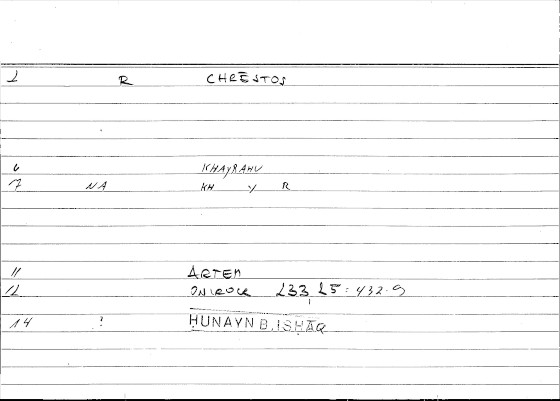 1 R CHRĒSTOS
6 KHAYRAHU
7 NA KH Y R
11 ARTEM
12 ONIROCR 233, 15: 432.9
14 ? ḤUNAYN B. ISḤĀQ